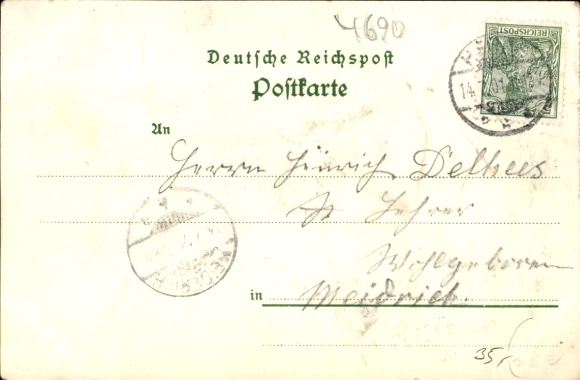 4690
Deutsche Reichspost
Postkarte
REICHSPOST
14
01
An
Herrn Heinrich Delhees
Lehrer
Wohlgeboren
in Meidrich.
35,-